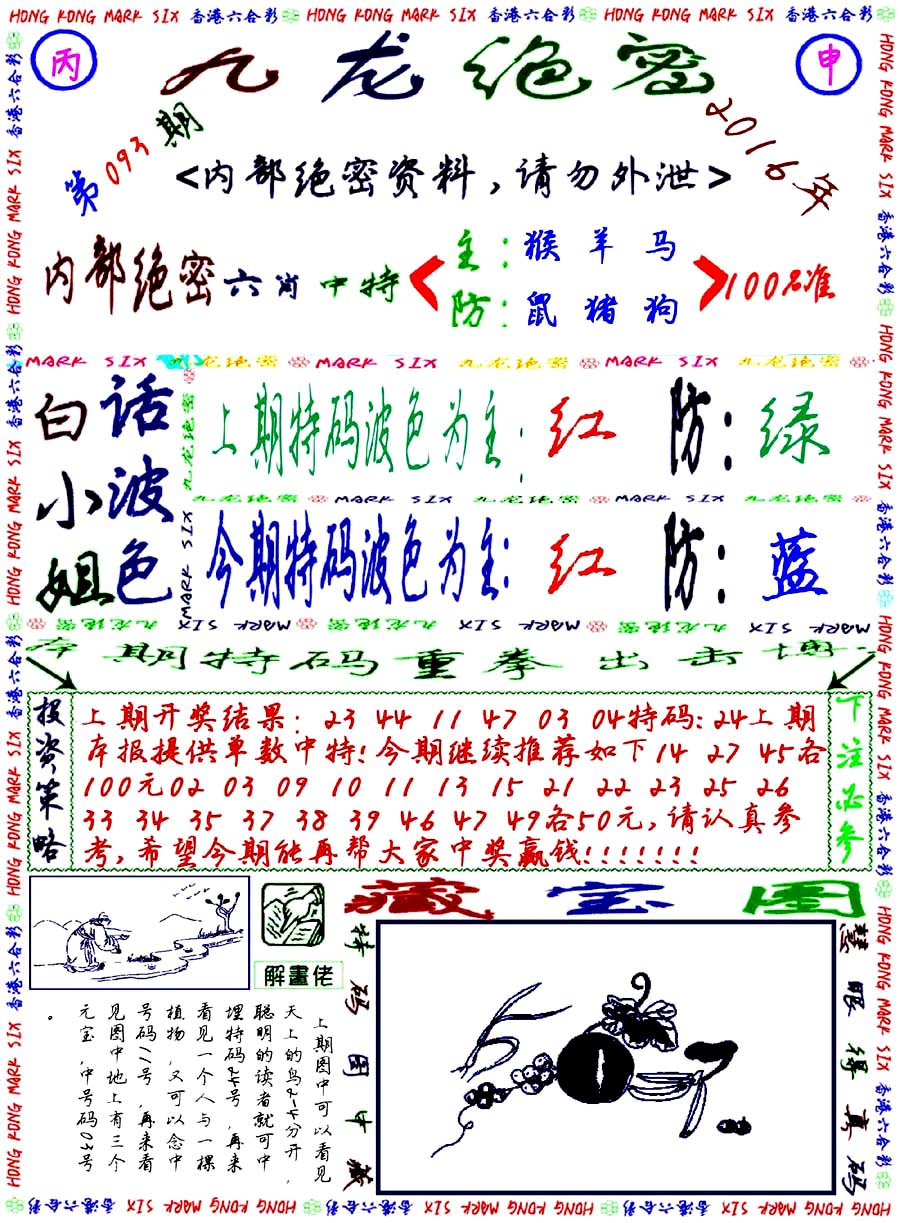 HONG KONG MARK SIX 香港六合彩 HONG KONG MARK SIX 香港六合彩 HONG KONG MARK SIX 香港六合彩
丙
九龙绝密
申
第093期
2016年
<内部绝密资料,请勿外泄>
内部绝密六肖中特
主:猴羊马
防:鼠猪狗
100%准
MARK SIX 九龙绝密 MARK SIX 九龙绝密 MARK SIX 九龙绝密
白话
小波
姐色
上期特码波色为主:红 防:绿
九龙绝密 MARK SIX 九龙绝密 MARK SIX 九龙绝密
今期特码波色为主:红 防:蓝
九龙绝密 MARK SIX 九龙绝密 MARK SIX 九龙绝密 MARK SIX
本期特码重拳出击
投资策略
上期开奖结果: 23 44 11 47 03 04特码:24上期
本报提供单数中特!今期继续推荐如下14 27 45各
100元02 03 09 10 11 13 15 21 22 23 25 26
33 34 35 37 38 39 46 47 49各50元,请认真参
考,希望今期能再帮大家中奖赢钱!!!!!!!
下注必参
解畫佬
藏宝图
上期图中可以看见
天上的鸟2-4分开,
聪明的读者就可中
埋特码24号,再来
看见一个人与一棵
植物,又可以念中
号码11号,再来看
见图中地上有三个
元宝,中号码03号
。
特码图中藏
慧眼得真码
HONG KONG MARK SIX 香港六合彩 HONG KONG MARK SIX 香港六合彩 HONG KONG MARK SIX 香港六合彩